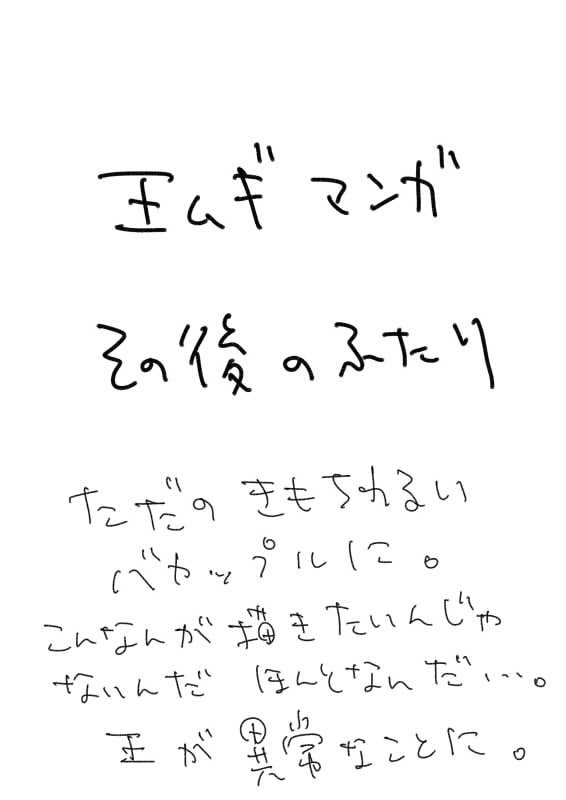 王ムギマンガ
その後のふたり
ただの きもちわるい
バカップルに。
こんなんが描きたいんじゃ
ないんだ ほんとなんだ…。
王が異常なことに。